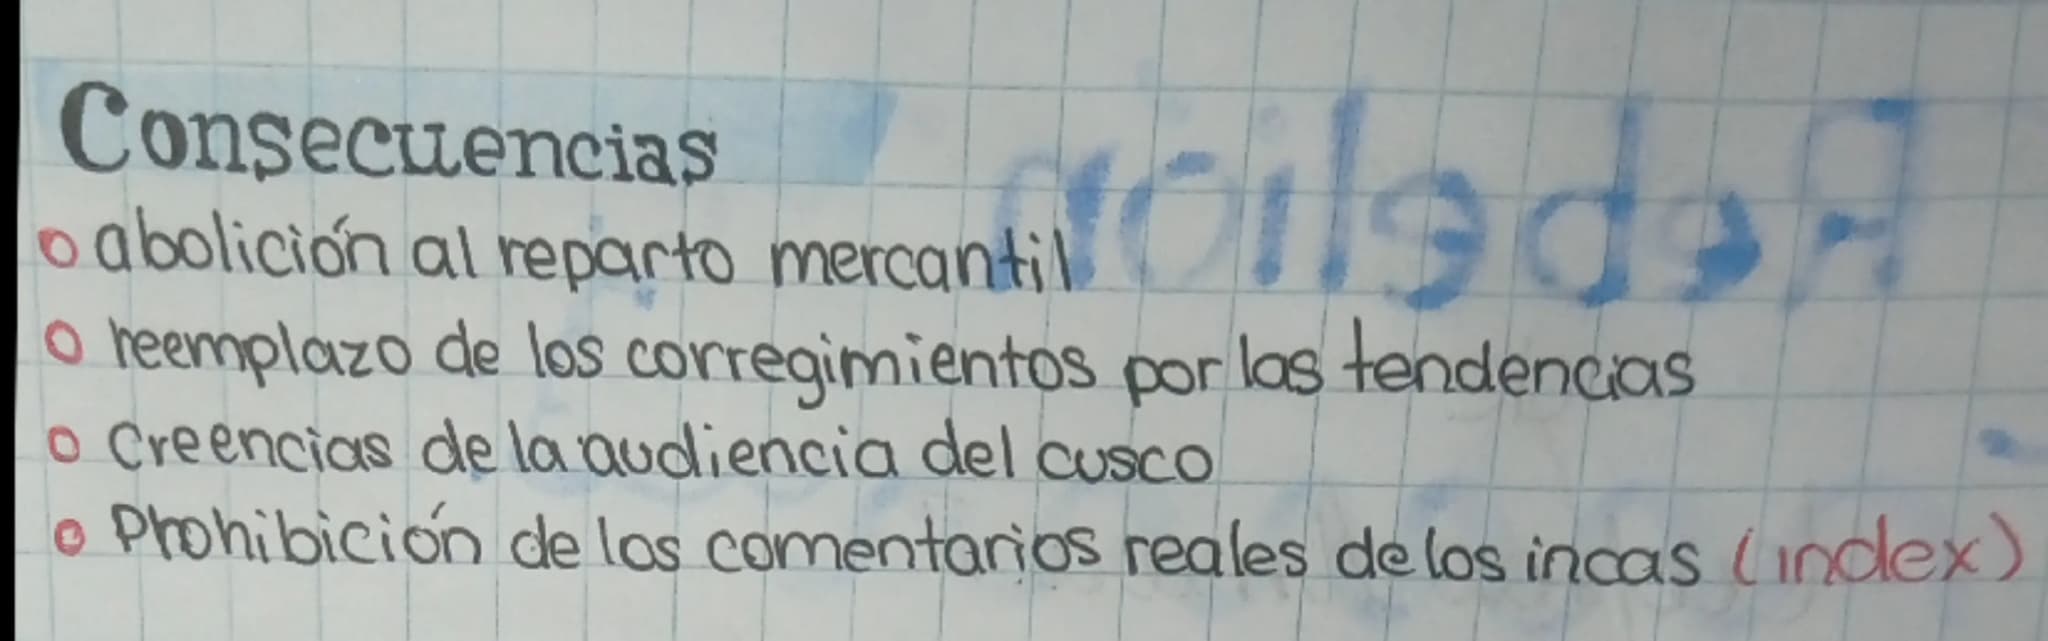 Consecuencias
o abolición al reparto mercantil
o reemplazo de los corregimientos por las tendencias
o Creencias de la audiencia del cusco
o Prohibición de los comentarios reales de los incas (index)
Rebelión